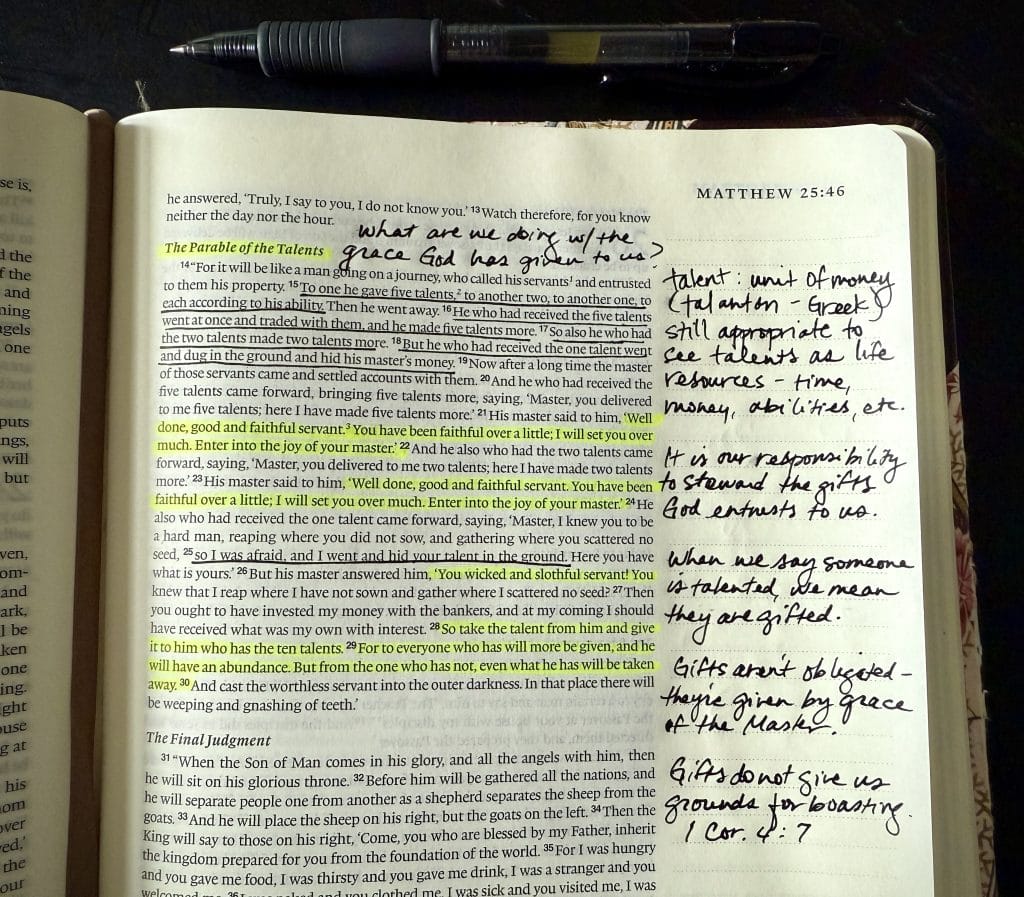 se is,
d the
f the
and
ning
ngels
one
puts
ngs,
will
but
ven,
om-
and
ark,
l be
ken
one
ing.
ight
ouse
g at
his
om
over
ved,'
the
our
MATTHEW 25:46
he answered, ‘Truly, I say to you, I do not know you.’ 13 Watch therefore, for you know
neither the day nor the hour.
what are we doing w/ the
grace God has given to us?
The Parable of the Talents
14 “For it will be like a man going on a journey, who called his servants¹ and entrusted
to them his property. 15 To one he gave five talents,² to another two, to another one, to
each according to his ability. Then he went away. 16 He who had received the five talents
went at once and traded with them, and he made five talents more. 17 So also he who had
the two talents made two talents more. 18 But he who had received the one talent went
and dug in the ground and hid his master’s money. 19 Now after a long time the master
of those servants came and settled accounts with them. 20 And he who had received the
five talents came forward, bringing five talents more, saying, ‘Master, you delivered
to me five talents; here I have made five talents more.’ 21 His master said to him, ‘Well
done, good and faithful servant.³ You have been faithful over a little; I will set you over
much. Enter into the joy of your master.’ 22 And he also who had the two talents came
forward, saying, ‘Master, you delivered to me two talents; here I have made two talents
more.’ 23 His master said to him, ‘Well done, good and faithful servant. You have been
faithful over a little; I will set you over much. Enter into the joy of your master.’ 24 He
also who had received the one talent came forward, saying, ‘Master, I knew you to be
a hard man, reaping where you did not sow, and gathering where you scattered no
seed, 25 so I was afraid, and I went and hid your talent in the ground. Here you have
what is yours.’ 26 But his master answered him, ‘You wicked and slothful servant! You
knew that I reap where I have not sown and gather where I scattered no seed? 27 Then
you ought to have invested my money with the bankers, and at my coming I should
have received what was my own with interest. 28 So take the talent from him and give
it to him who has the ten talents. 29 For to everyone who has will more be given, and he
will have an abundance. But from the one who has not, even what he has will be taken
away. 30 And cast the worthless servant into the outer darkness. In that place there will
be weeping and gnashing of teeth.’
The Final Judgment
31 “When the Son of Man comes in his glory, and all the angels with him, then
he will sit on his glorious throne. 32 Before him will be gathered all the nations, and
he will separate people one from another as a shepherd separates the sheep from the
goats. 33 And he will place the sheep on his right, but the goats on the left. 34 Then the
King will say to those on his right, ‘Come, you who are blessed by my Father, inherit
the kingdom prepared for you from the foundation of the world. 35 For I was hungry
and you gave me food, I was thirsty and you gave me drink, I was a stranger and you
welcomed me, 36 I was naked and you clothed me, I was sick and you visited me, I was
talent: unit of money
(talanton - Greek)
still appropriate to
see talents as life
resources - time,
money, abilities, etc.
It is our responsibility
to steward the gifts
God entrusts to us.
When we say someone
is talented, we mean
they are gifted.
Gifts aren't obligated -
they're given by grace
of the Master.
Gifts do not give us
grounds for boasting.
1 Cor. 4:7